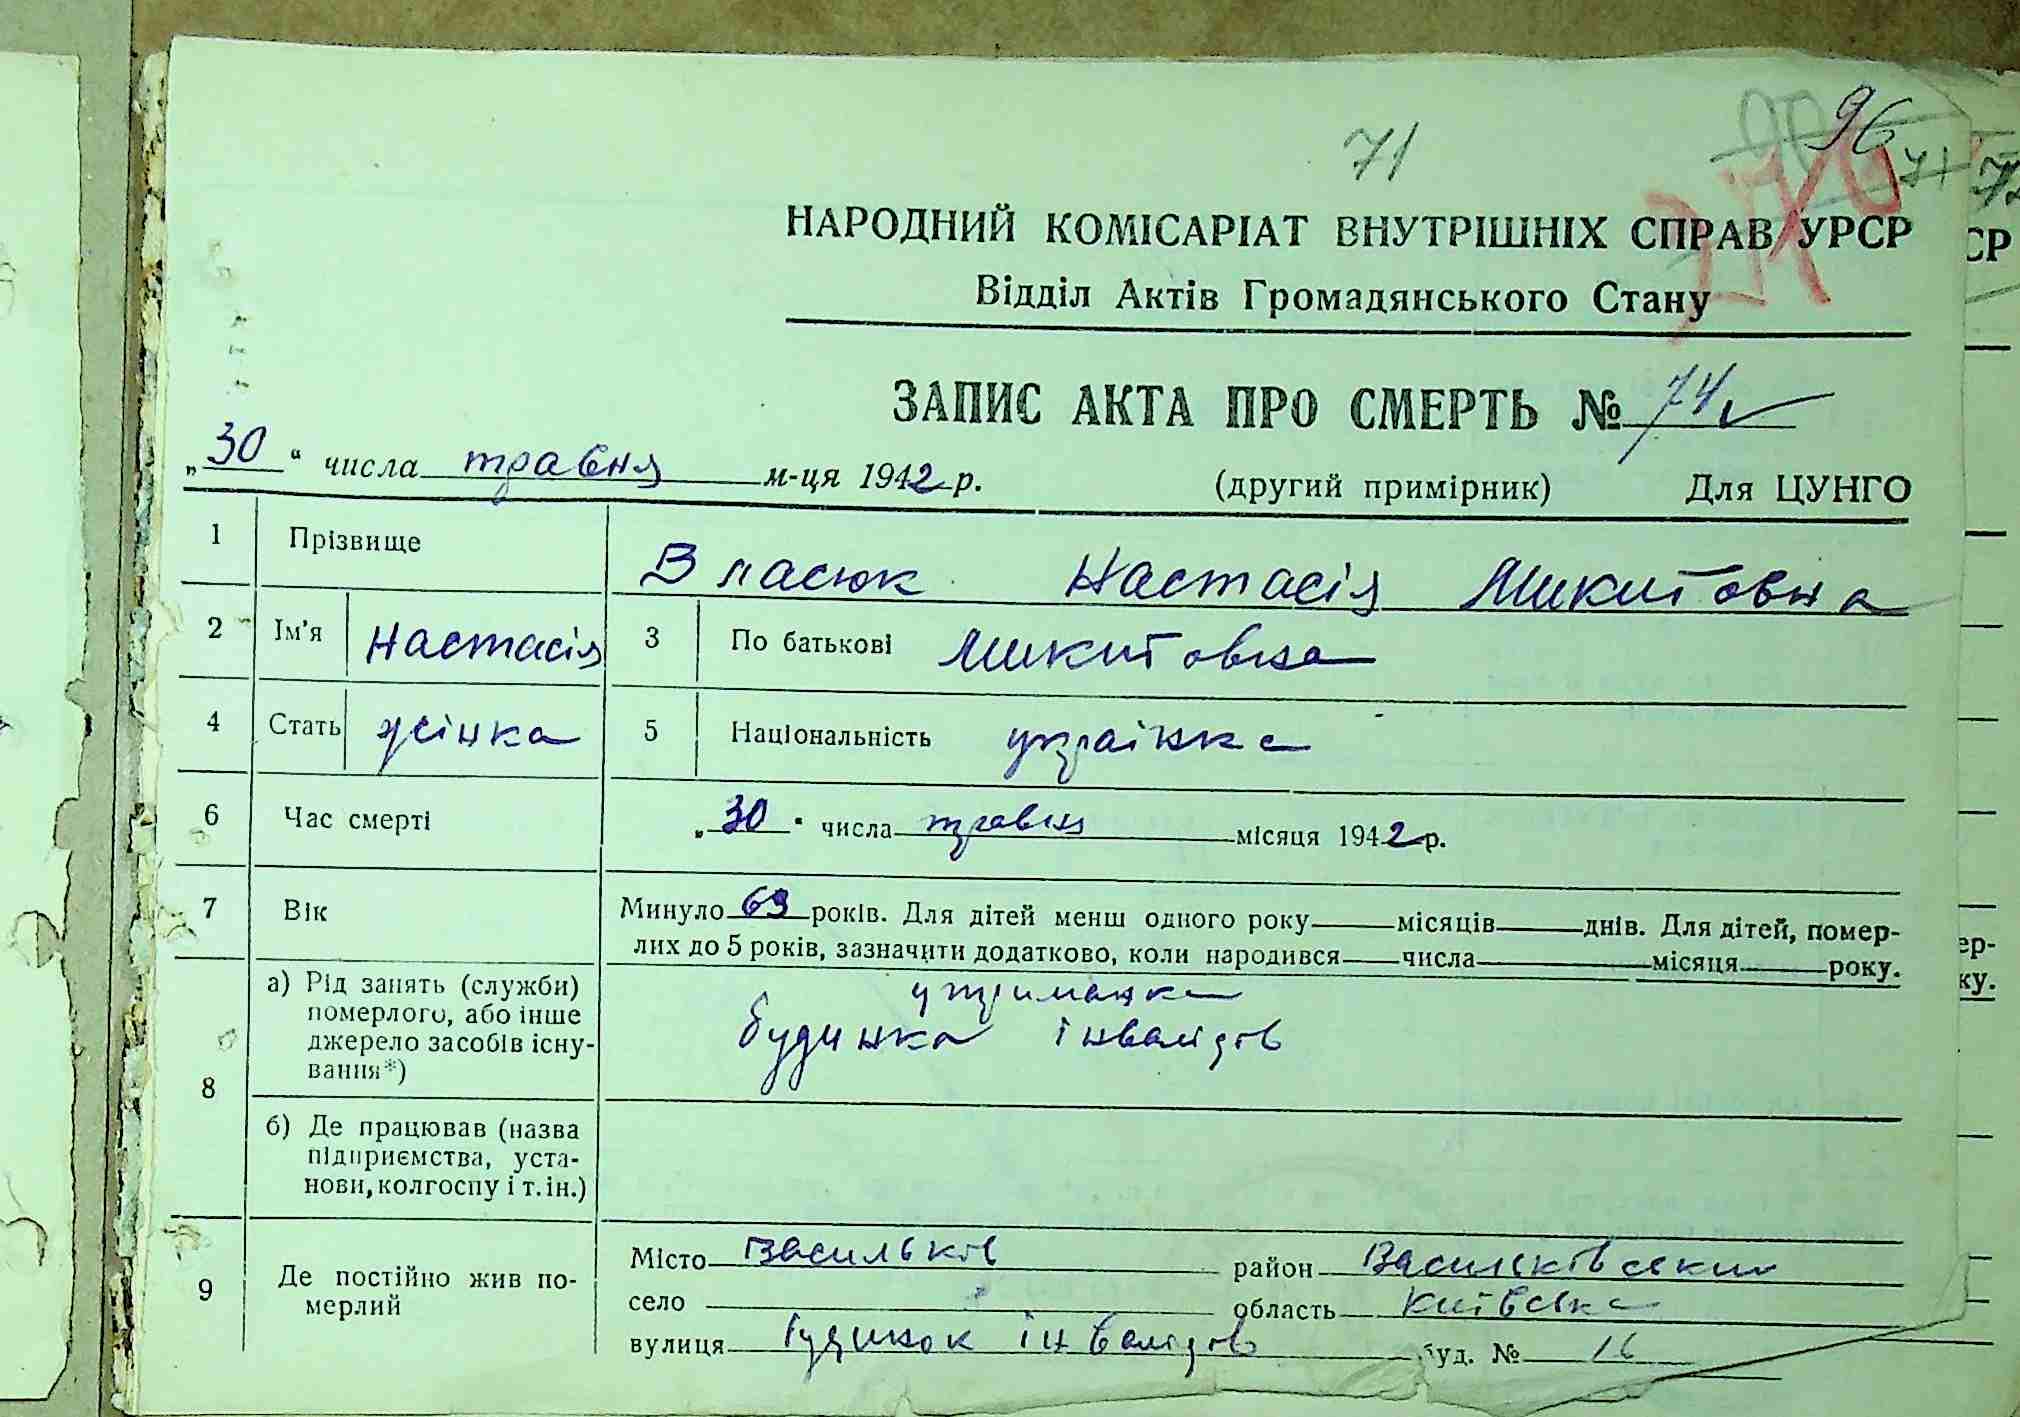 96
71
71
НАРОДНИЙ КОМІСАРІАТ ВНУТРІШНІХ СПРАВ УРСР
Відділ Актів Громадянського Стану
ЗАПИС АКТА ПРО СМЕРТЬ № 74
„30“ числа травня м-ця 1942 р. (другий примірник) Для ЦУНГО
1 Прізвище Власюк Настасія Микитовна
2 Ім’я Настасія 3 По батькові Микитовна
4 Стать жінка 5 Національність українка
6 Час смерті „30“ числа травня місяця 1942 р.
7 Вік Минуло 69 років. Для дітей менш одного року місяців днів. Для дітей, помер-
лих до 5 років, зазначити додатково, коли народився числа місяця року.
8 а) Рід занять (служби) померлого, або інше джерело засобів існу-вання*) утриманка
будинка інвалідов
б) Де працював (назва
підприємства, уста-
нови, колгоспу і т. ін.)
9 Де постійно жив по-мерлий Місто Васильків район Васильківський
село область Київська
вулиця будинок інвалідов буд. № 16
СР
ер-
ку.